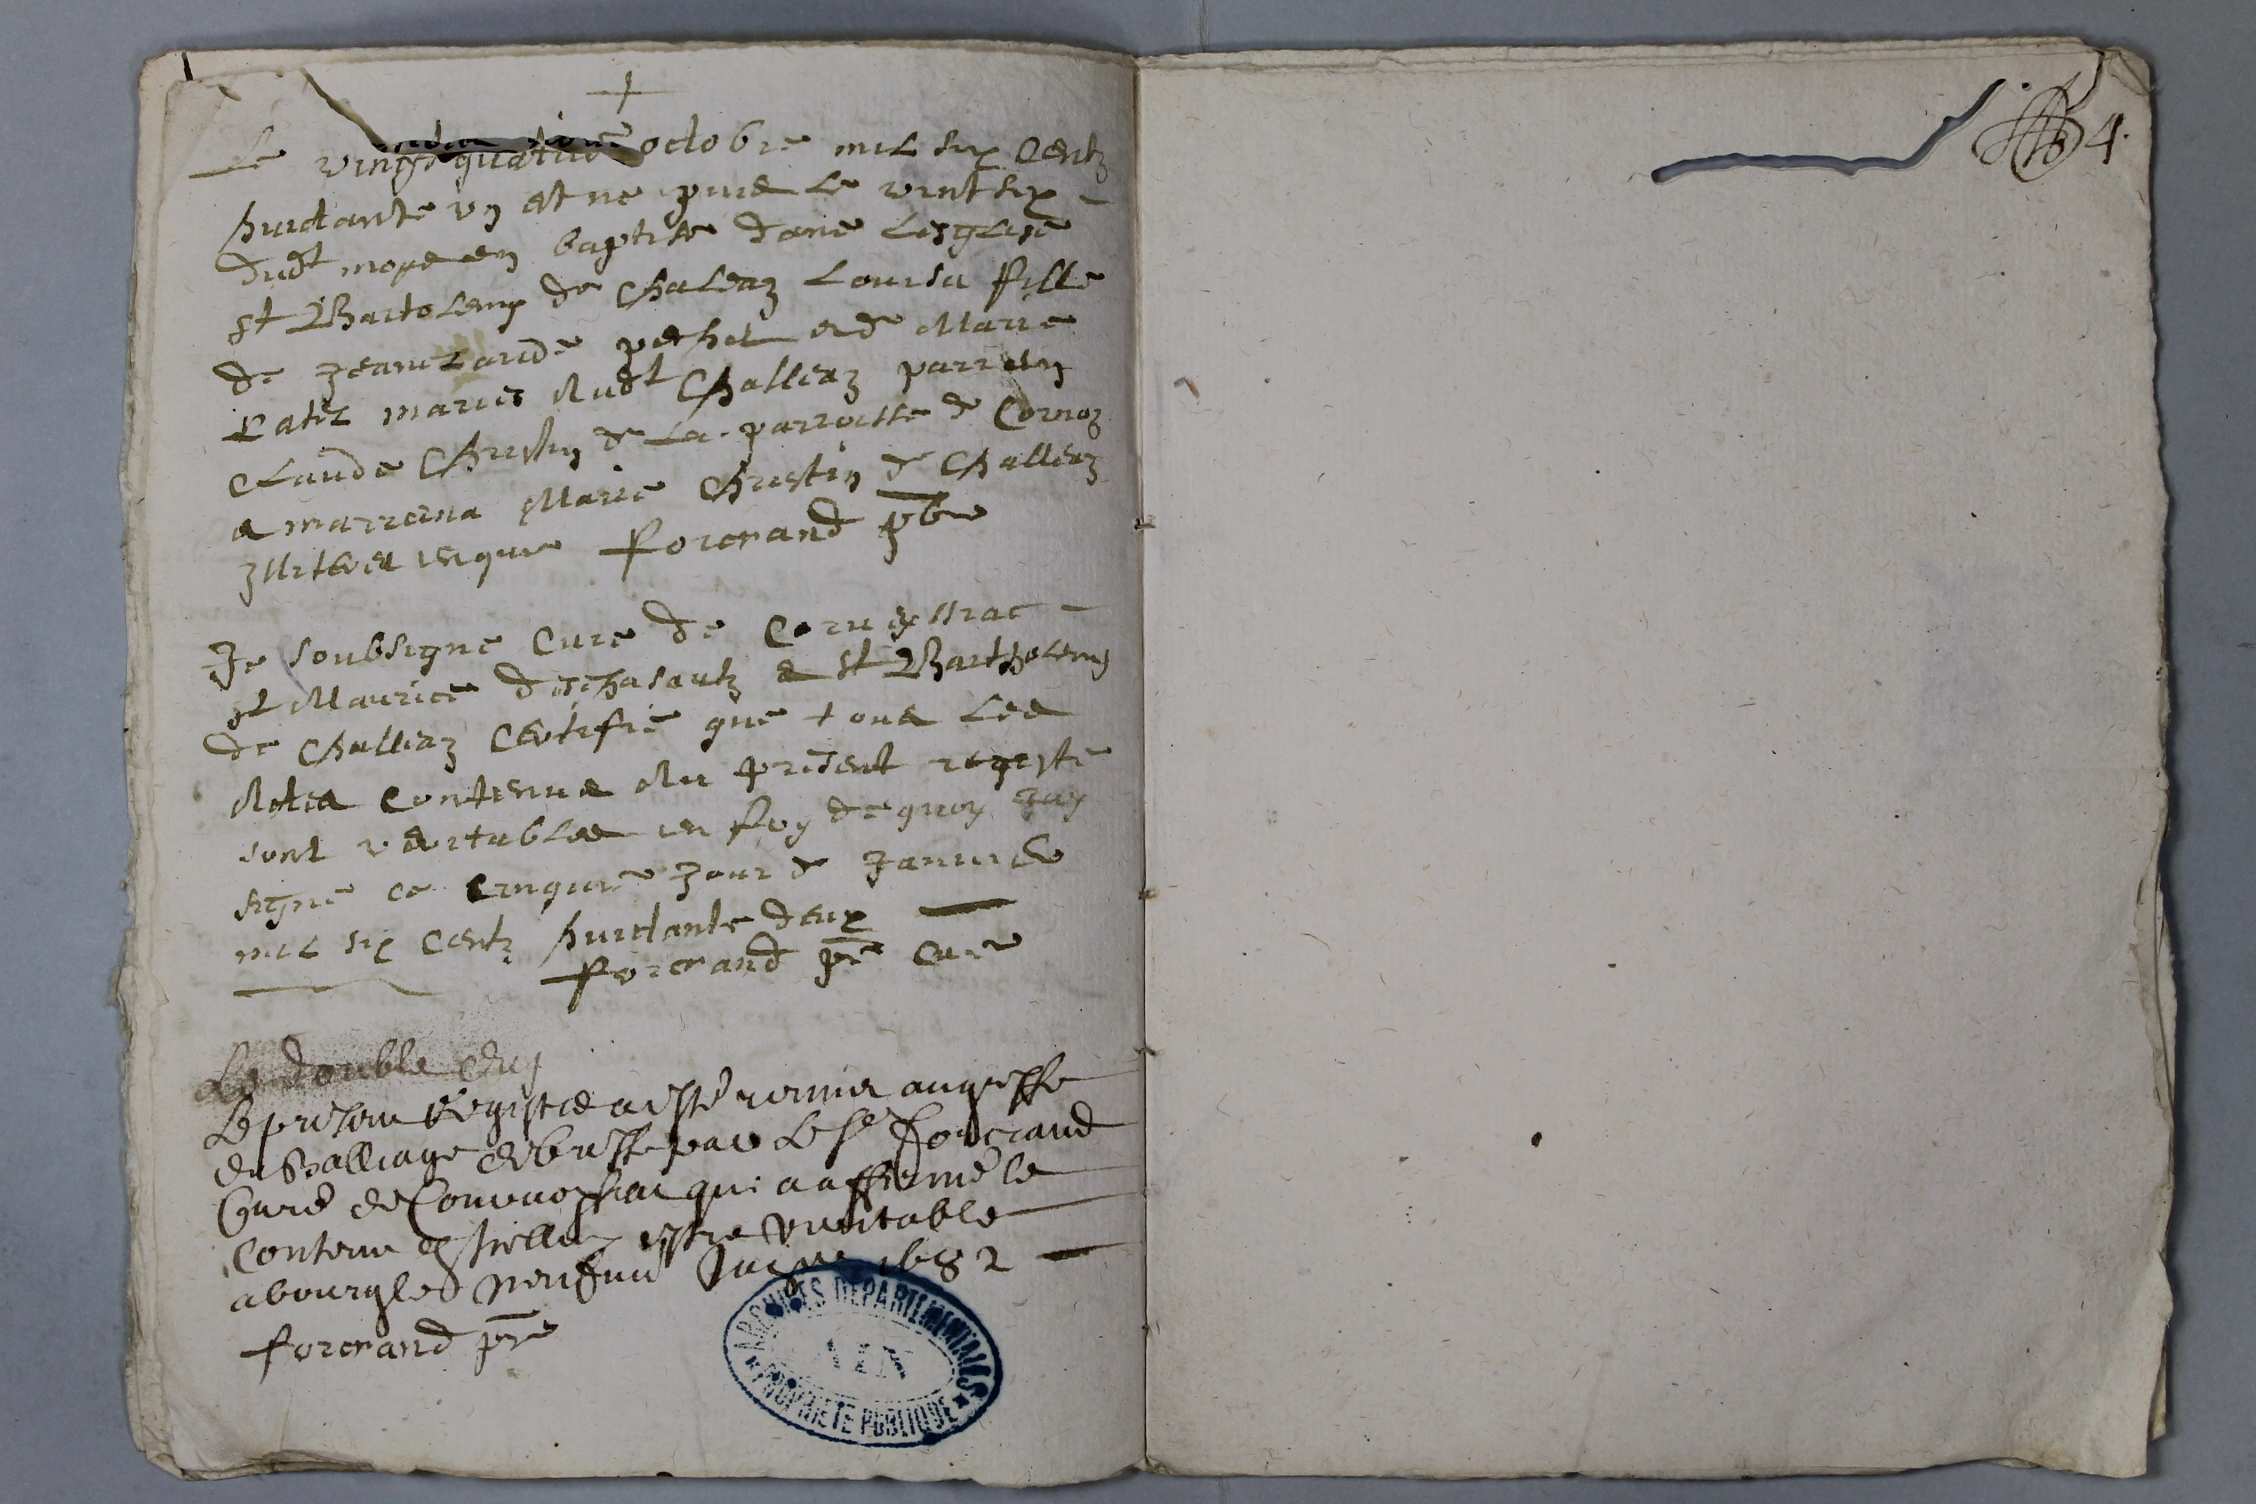 +
Le vingt quatrie octobre mil six Centz
huictante un est ne puis le vint six
dudt moys en baptise dans Lesglise
st Bartolemy de Chaleaz Louisa fille
de Jeanclaude pechet et de Marie
Patez maries dudt Challeaz parrein
Claude Christin de La parroisse de Cornoz
a marrena Marie Christin de Challeaz
forcrand pbre
Je soubsigne Cure de Cornessiac
st Maurice deschasautz & st Bartholemy
de Challeaz Certifie que tous Les
Actes Contenus Au present registre
sont veritables en foy de quoy Jay
signe ce cinquie Jour de Janvier
mil six Centz huictante deux
forcrand pre Cure
Le double du
Le present Registre a esté remis au greffe
du Balliage de bresse par Le Sr forcrand
Curé de qui a affirmé le
Contenu en icelluy estre veritable
a bourg le 1682
forcrand pre
ARCHIVES DEPARTEMENTALES
AIN
PROPRIETE PUBLIQUE
4.